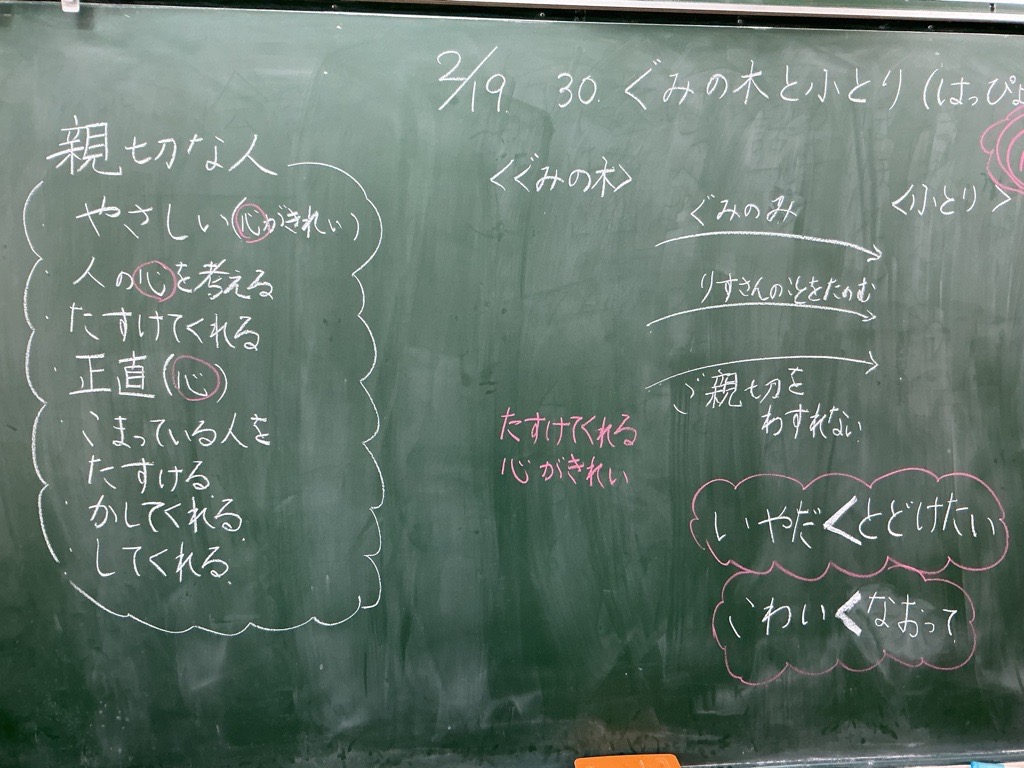 2/19. 30. ぐみの木と小とり(はっぴょ
親切な人
やさしい(心がきれい)
人の心を考える
たすけてくれる
正直(心)
こまっている人を
たすける
かしてくれる
してくれる
<ぐみの木>
<小とり>
ぐみのみ
りすさんのことをたのむ
ご親切を
わすれない
たすけてくれる
心がきれい
いやだ<とどけたい
こわい<なおって